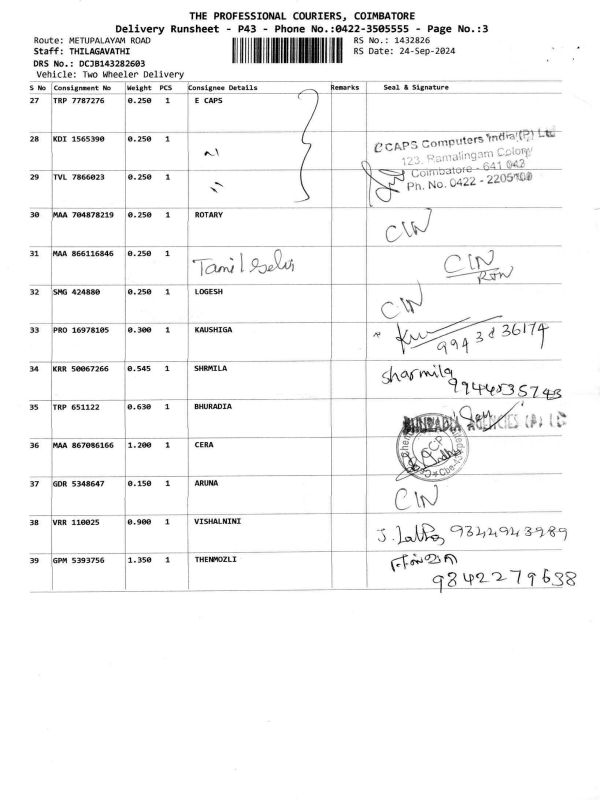 THE PROFESSIONAL COURIERS, COIMBATORE
Delivery Runsheet - P43 - Phone No.:0422-3505555 - Page No.:3
Route: METUPALAYAM ROAD RS No.: 1432826
Staff: THILAGAVATHI RS Date: 24-Sep-2024
DRS No.: DCJB143282603
Vehicle: Two Wheeler Delivery
S No Consignment No Weight PCS Consignee Details Remarks Seal & Signature
27 TRP 7787276 0.250 1 E CAPS
28 KDI 1565390 0.250 1
CAPS Computers India (P) Ltd
123, Ramalingam Colony
29 TVL 7866023 0.250 1 Coimbatore - 641 042
Ph. No. 0422 - 2205100
30 MAA 704878219 0.250 1 ROTARY CIN
31 MAA 866116846 0.250 1 Tamil Selvi CIN
32 SMG 424880 0.250 1 LOGESH CIN
33 PRO 16978105 0.300 1 KAUSHIGA 9943836174
34 KRR 50067266 0.545 1 SHRMILA Sharmila
9944535743
35 TRP 651122 0.630 1 BHURADIA BHURADIA AGENCIES (P) LTD
36 MAA 867086166 1.200 1 CERA
37 GDR 5348647 0.150 1 ARUNA CIN
38 VRR 110025 0.900 1 VISHALNINI J. Latha 9344943989
39 GPM 5393756 1.350 1 THENMOZLI
9842279638